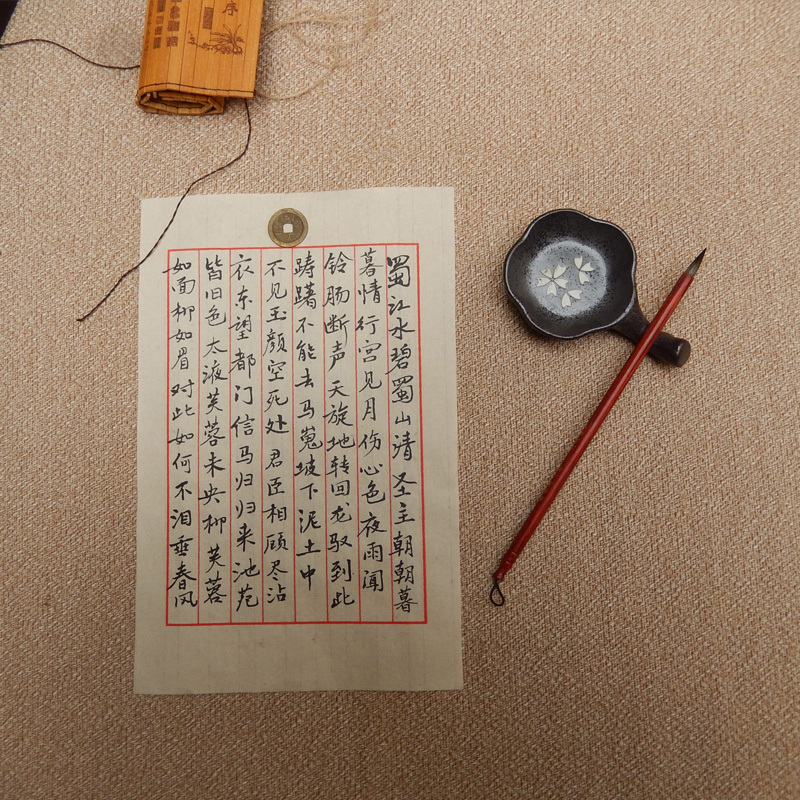 序
蜀江水碧蜀山清圣主朝朝暮
暮情行宫见月伤心色夜雨闻
铃肠断声天旋地转回龙驭到此
踌躇不能去马嵬坡下泥土中
不见玉颜空死处君臣相顾尽沾
衣东望都门信马归归来池苑
皆旧色太液芙蓉未央柳芙蓉
如面柳如眉对此如何不泪垂春风